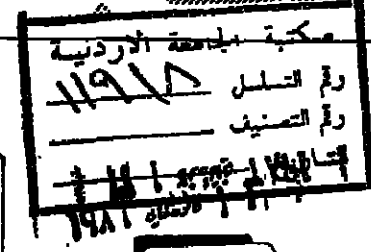 مكتبة الجامعة الاردنية
رقم التسلسل ١١٩١٨
رقم التصنيف
التاريخ
١٩٨١